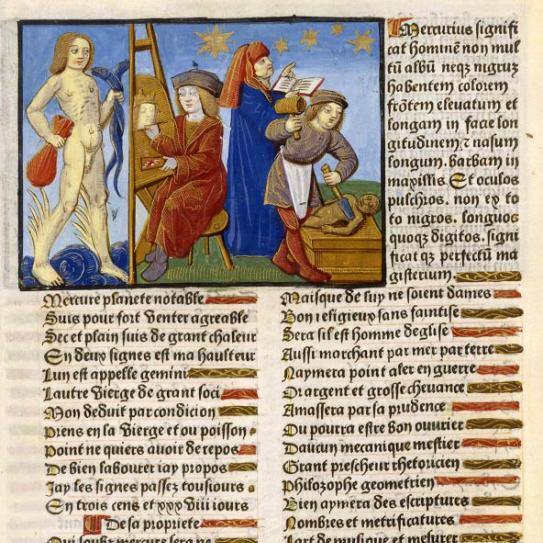 Mercurius signifi
cat hominē non mul
tū albū neqz nigruz
habentem colorem
frōtem eleuatum et
longam in facie lon
gitudinem & nasum
longum. barbam in
maxillis. Et oculos
pulchros. non ex to
to nigros. longuos
quoqz digitos. signi
ficat qz perfectū ma
gisterium.
Mercure planete notable
Suis pour fort venter agreable
Sec et plain suis de grant chaleur
En deux signes est ma haulteur
Lun est appelle gemini
Lautre vierge de grant soci
Mon deduit par condicion
Prens en la vierge et ou poisson
Point ne quiers auoir de repos
De bien labourer iay propos
Jay les signes passez tousiours
En trois cens et xxviii iours
De sa propriete
Qui soubz mercure sera ne
Maisque de luy ne soient dames
Bon religieux sans faintise
Sera sil est homme deglise
Aussi marchant par mer par terre
Naymera point aler en guerre
Dr argent et grosse cheuance
Amassera par sa prudence
Ou pourra estre bon ouurier
Daucun mecanique mestier
Grant prescheur rhetoricien
Philozophe geometrien
Bien aymera des escriptures
Nombres et metrificatures
Lart de musique et mesurer